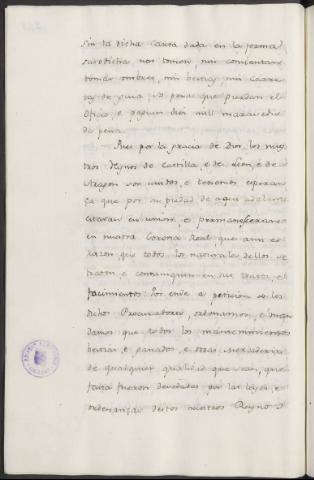 sin la dicha Carta dada en la forma
susodicha non tomen, nin consientan
tomar ombres, nin bestias, nin Carre
tas de guia, so pena que pierdan el
Oficio, e paguen diez mill maravedis
de pena.
Pues por la gracia de Dios, los nues
tros Reynos de Castilla, e de Leon, e de
Aragon son unidos, e tenemos esperan
ça que por su piedad de aqui adelante
estaran en union, e permanesceran
en nuestra Corona Real, que ansi es
razon, que todos los naturales dellos se
traten, e comuniquen en sus tratos, e
facimientos: Por ende a peticion de los
dichos Procuradores, ordenamos, e man
damos que todos los mantenimientos
bestias, e ganados, e otras mercaderias
de qualquier qualidad que sean, que
fasta fueron devedadas por las leyes, e
ordenanças destos nuestros Reynos